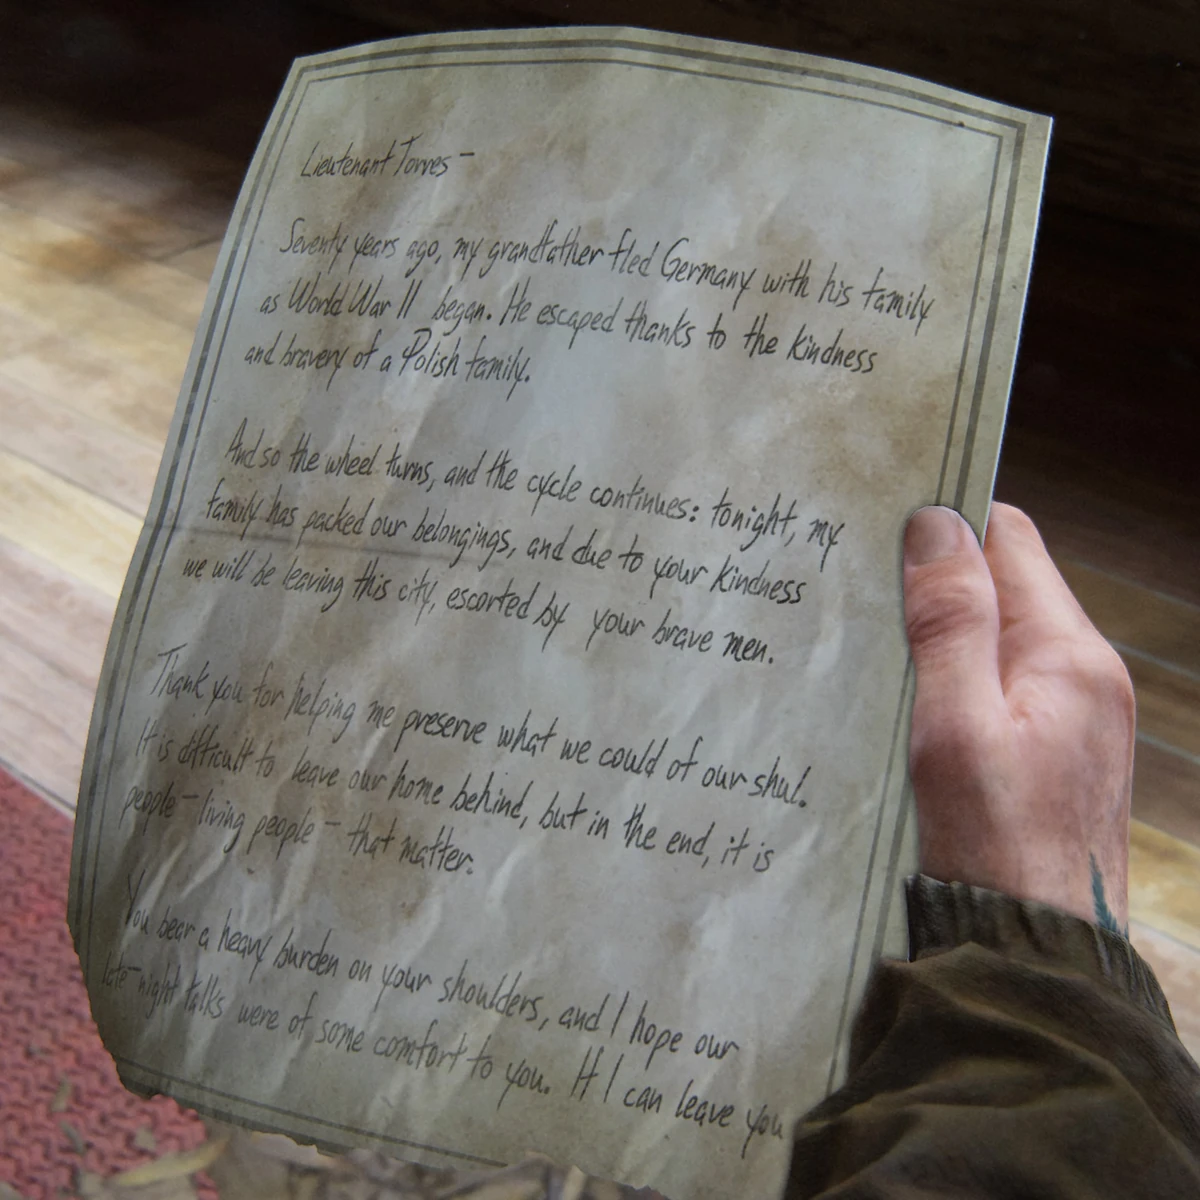 Lieutenant Torres-
Seventy years ago, my grandfather fled Germany with his family
as World War II began. He escaped thanks to the kindness
and bravery of a Polish family.
And so the wheel turns, and the cycle continues: tonight, my
family has packed our belongings, and due to your kindness
we will be leaving this city, escorted by your brave men.
Thank you for helping me preserve what we could of our shul.
It is difficult to leave our home behind, but in the end, it is
people-living people- that matter.
You bear a heavy burden on your shoulders, and I hope our
late-night talks were of some comfort to you. If I can leave you